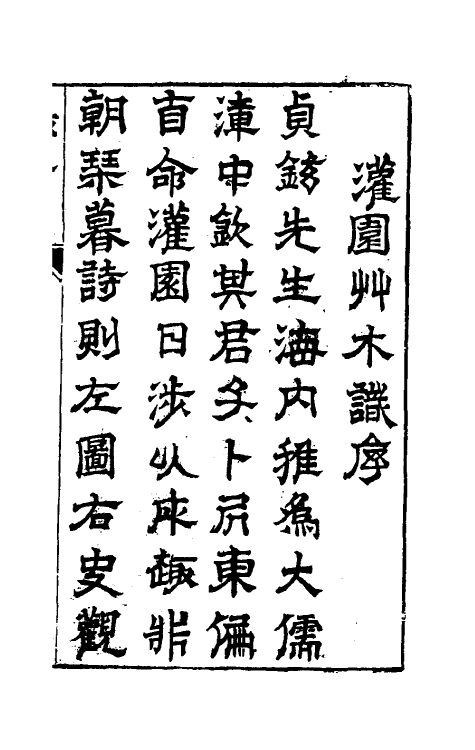 灌園艸木識序
貞鉉先生海内推為大儒
漳中欽其君矣卜凥東偏
自命灌園日涉以成趣非
朝琹暮詩則左圖右史觀